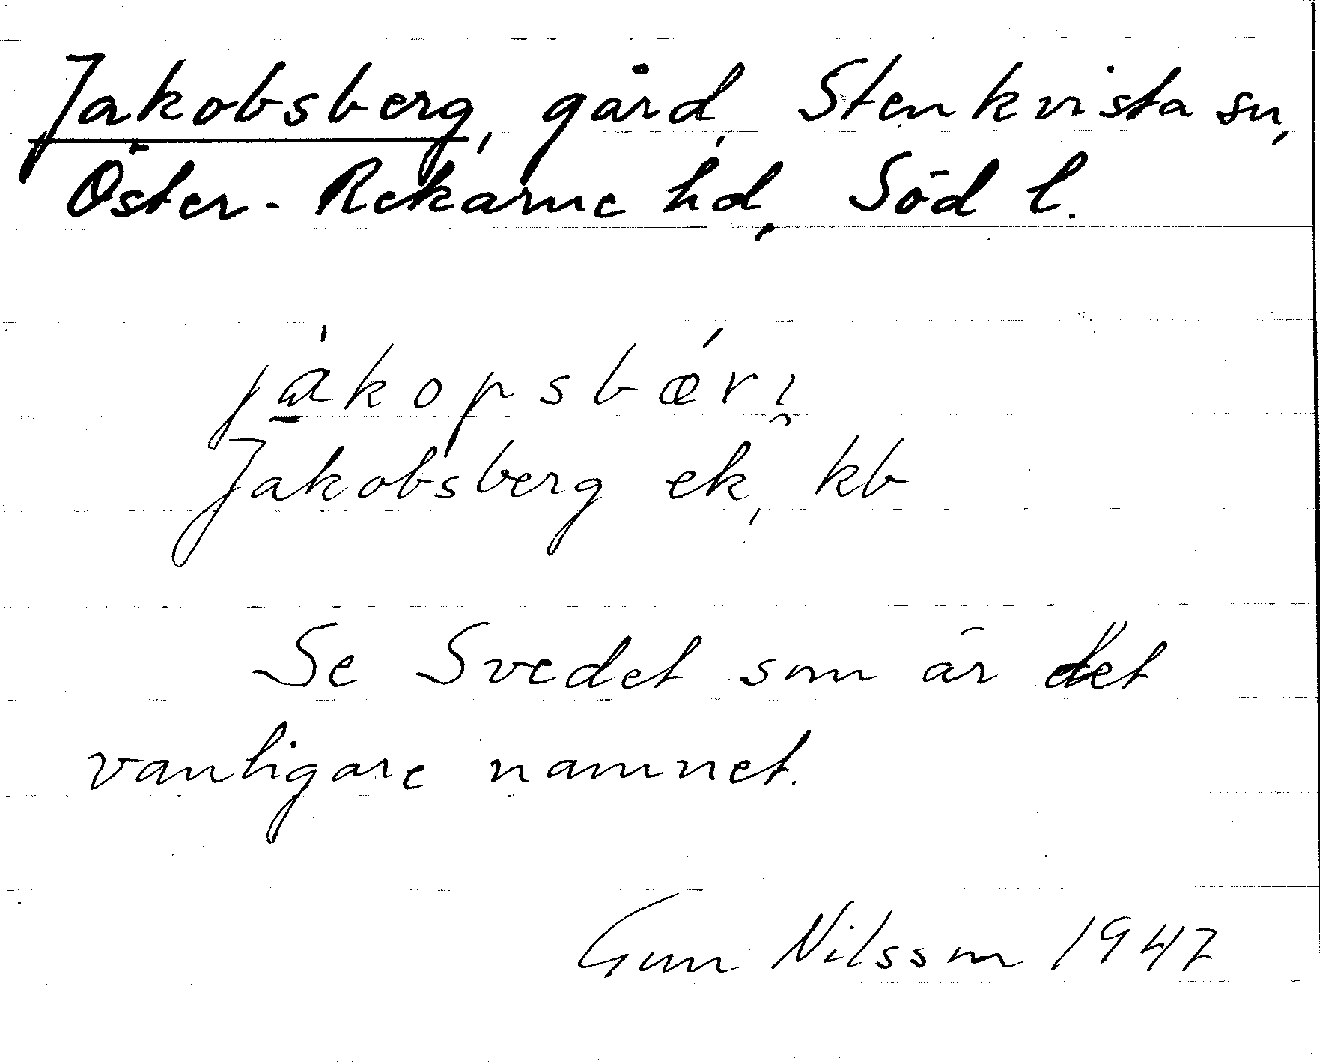 Jakobsberg, gård, Stenkvista sn,
Öster-Rekarne hd, Söd l.
jàkopsbǽri̯
Jakobsberg ek, kb
Se Svedet som är det
vanligare namnet.
Gun Nilsson 1947